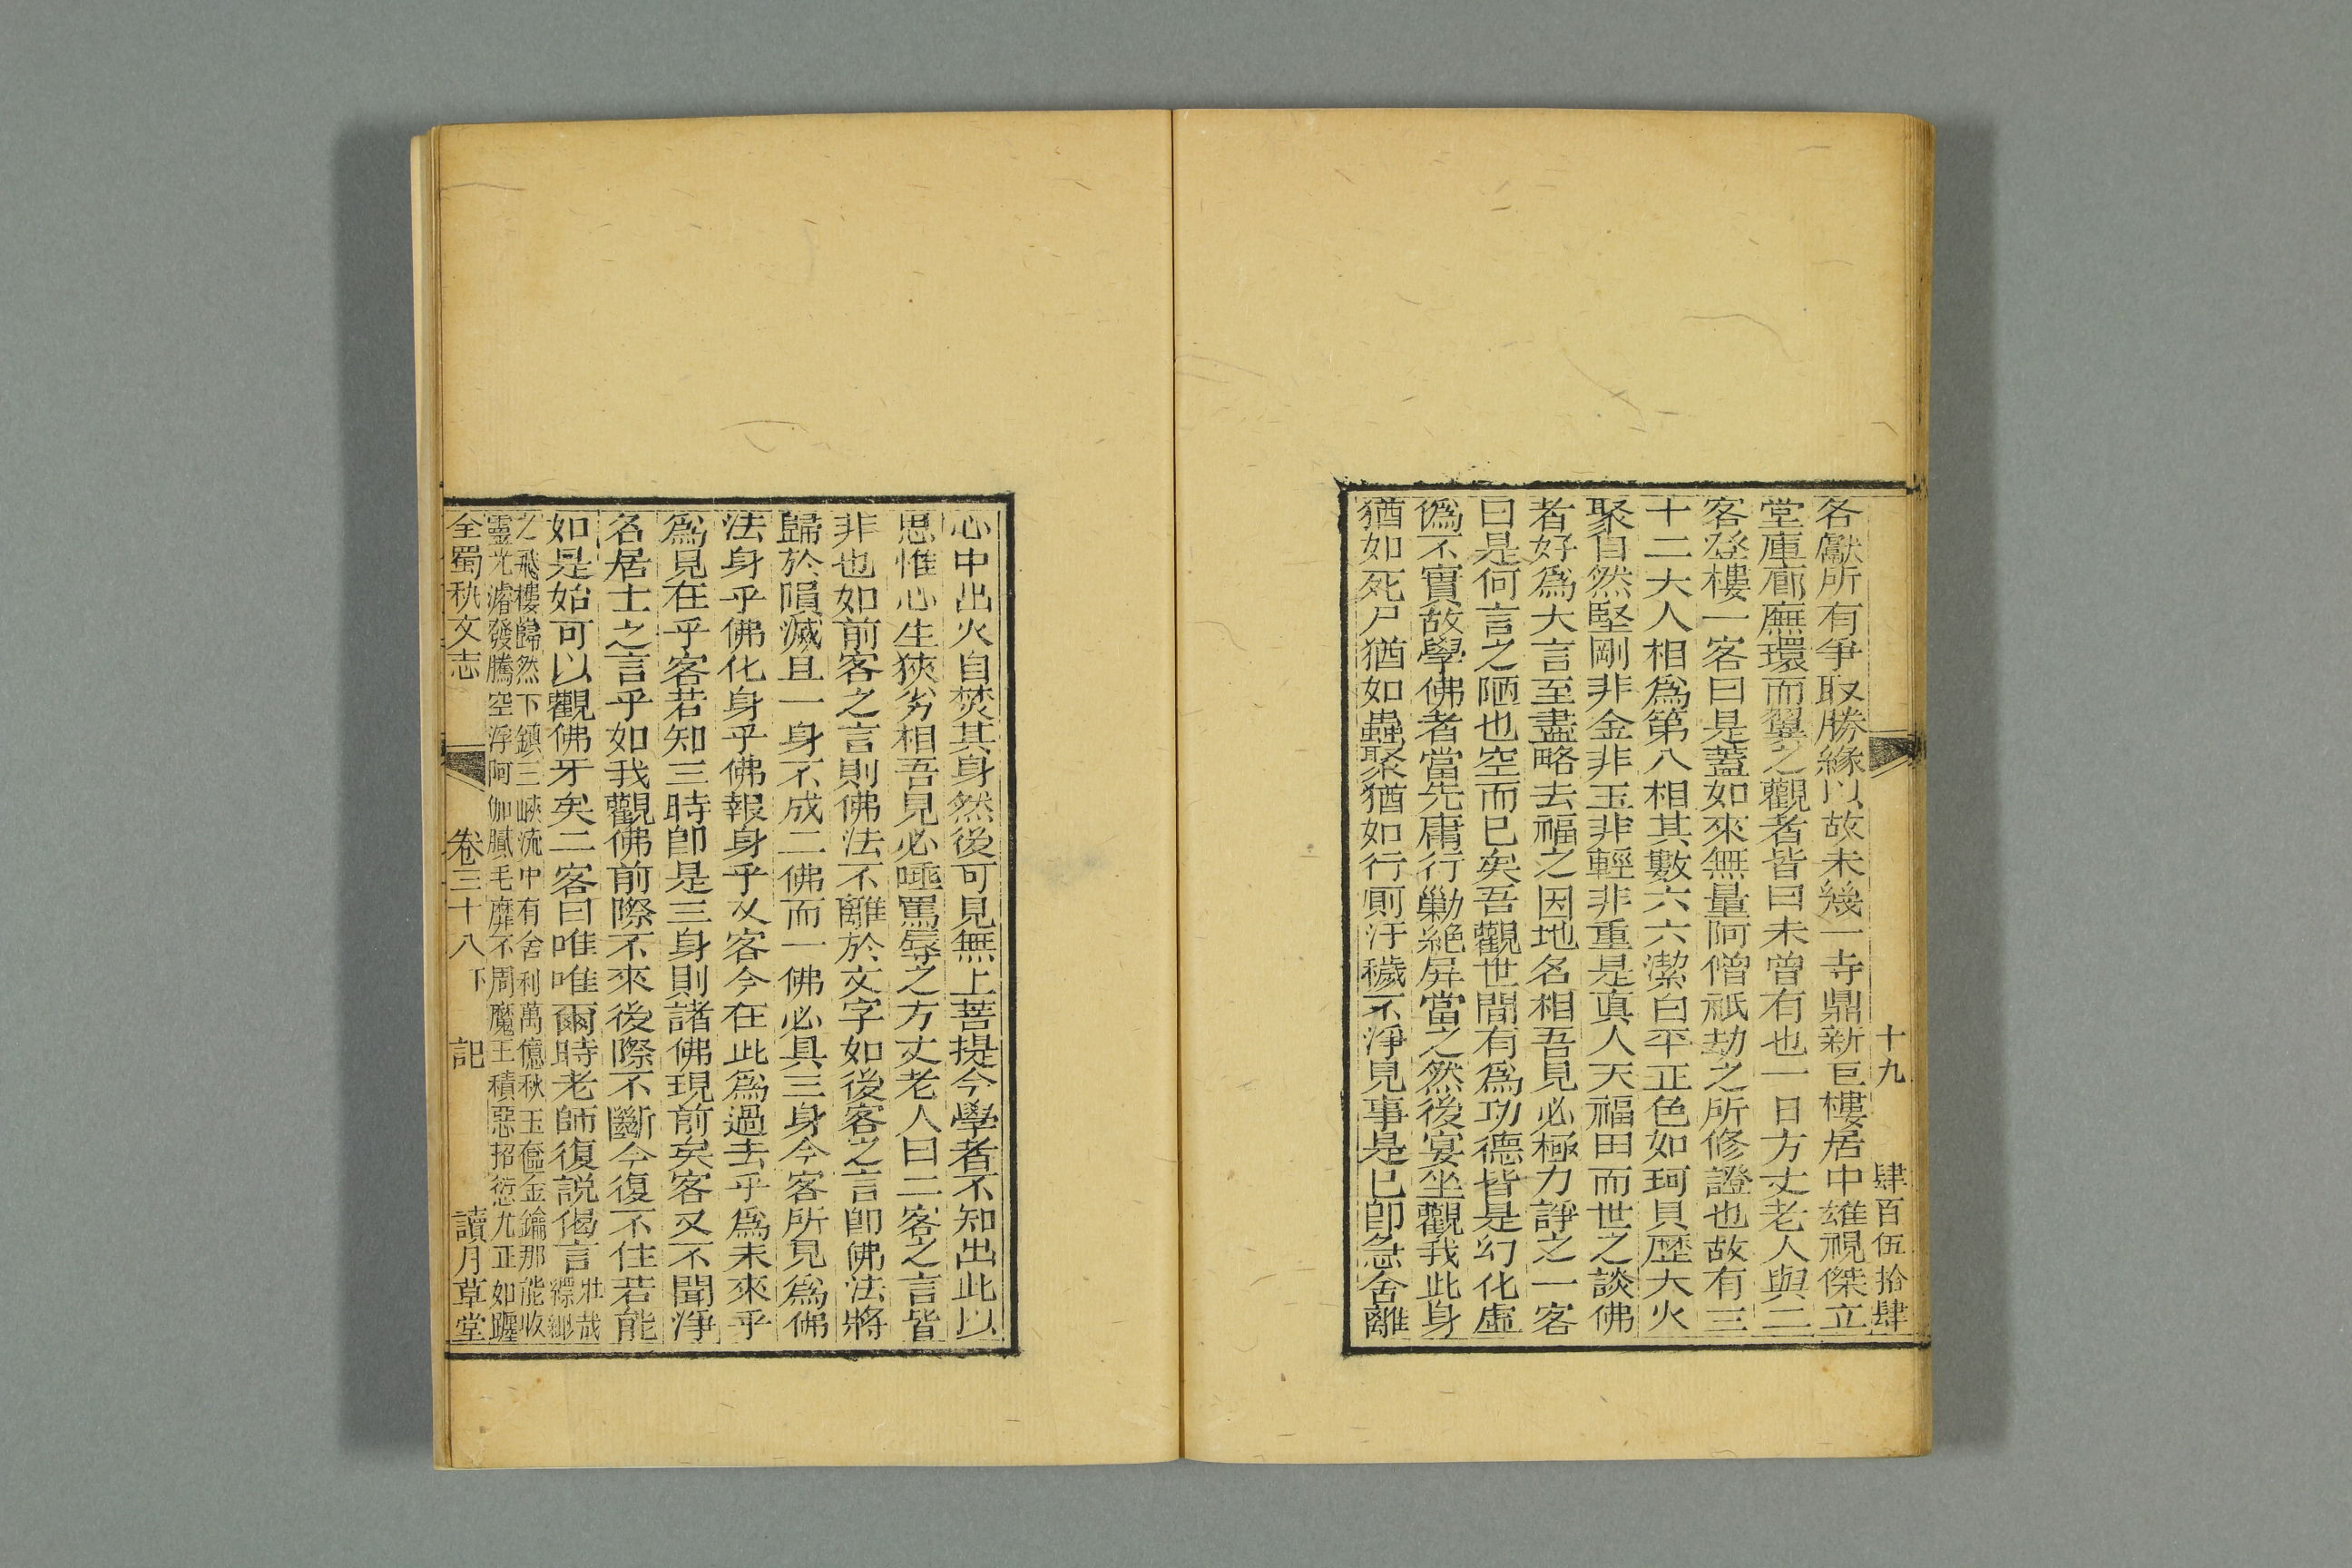 十九 肆百伍拾肆
各獻所有爭取勝緣以故未幾一寺鼎新巨樓居中雄視傑立
堂庫廊廡環而翼之觀者皆曰未曾有也一日方丈老人與二
客登樓一客曰是蓋如來無量阿僧祇劫之所修證也故有三
十二大人相爲第八相其數六六潔白平正色如珂貝歷大火
聚自然堅剛非金非玉非輕非重是眞人天福田而世之談佛
者好爲大言至盡略去福之因地名相吾見必極力諍之一客
曰是何言之陋也空而已矣吾觀世間有爲功德皆是幻化虛
僞不實故學佛者當先庸行勦絶屏當之然後宴坐觀我此身
猶如死尸猶如蟲聚猶如行厠汙穢不淨見事是已卽急舍離
心中出火自焚其身然後可見無上菩提今學者不知出此以
思惟心生狹劣相吾見必唾罵辱之方丈老人曰二客之言皆
非也如前客之言則佛法不離於文字如後客之言卽佛法將
歸於隕滅且一身不成二佛而一佛必具三身今客所見爲佛
法身乎佛化身乎佛報身乎又客今在此爲過去乎爲未來乎
爲見在乎客若知三時卽是三身則諸佛現前矣客又不聞淨
名居士之言乎如我觀佛前際不來後際不斷今復不住若能
如是始可以觀佛牙矣二客曰唯唯爾時老師復説偈言 壯哉
縹緲
之飛樓巋然下鎮三峽流中有舍利萬億秋玉奩金鑰那能收
靈光濬發騰空浮阿伽膩毛靡不周魔王積惡招愆尤正如躩
全蜀秇文志 卷三十八下 記 讀月草堂